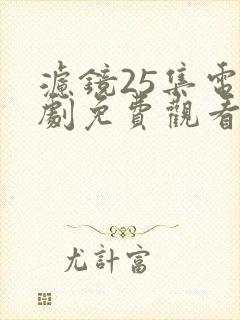 濾鏡25集電
劇免費觀看
尤計富